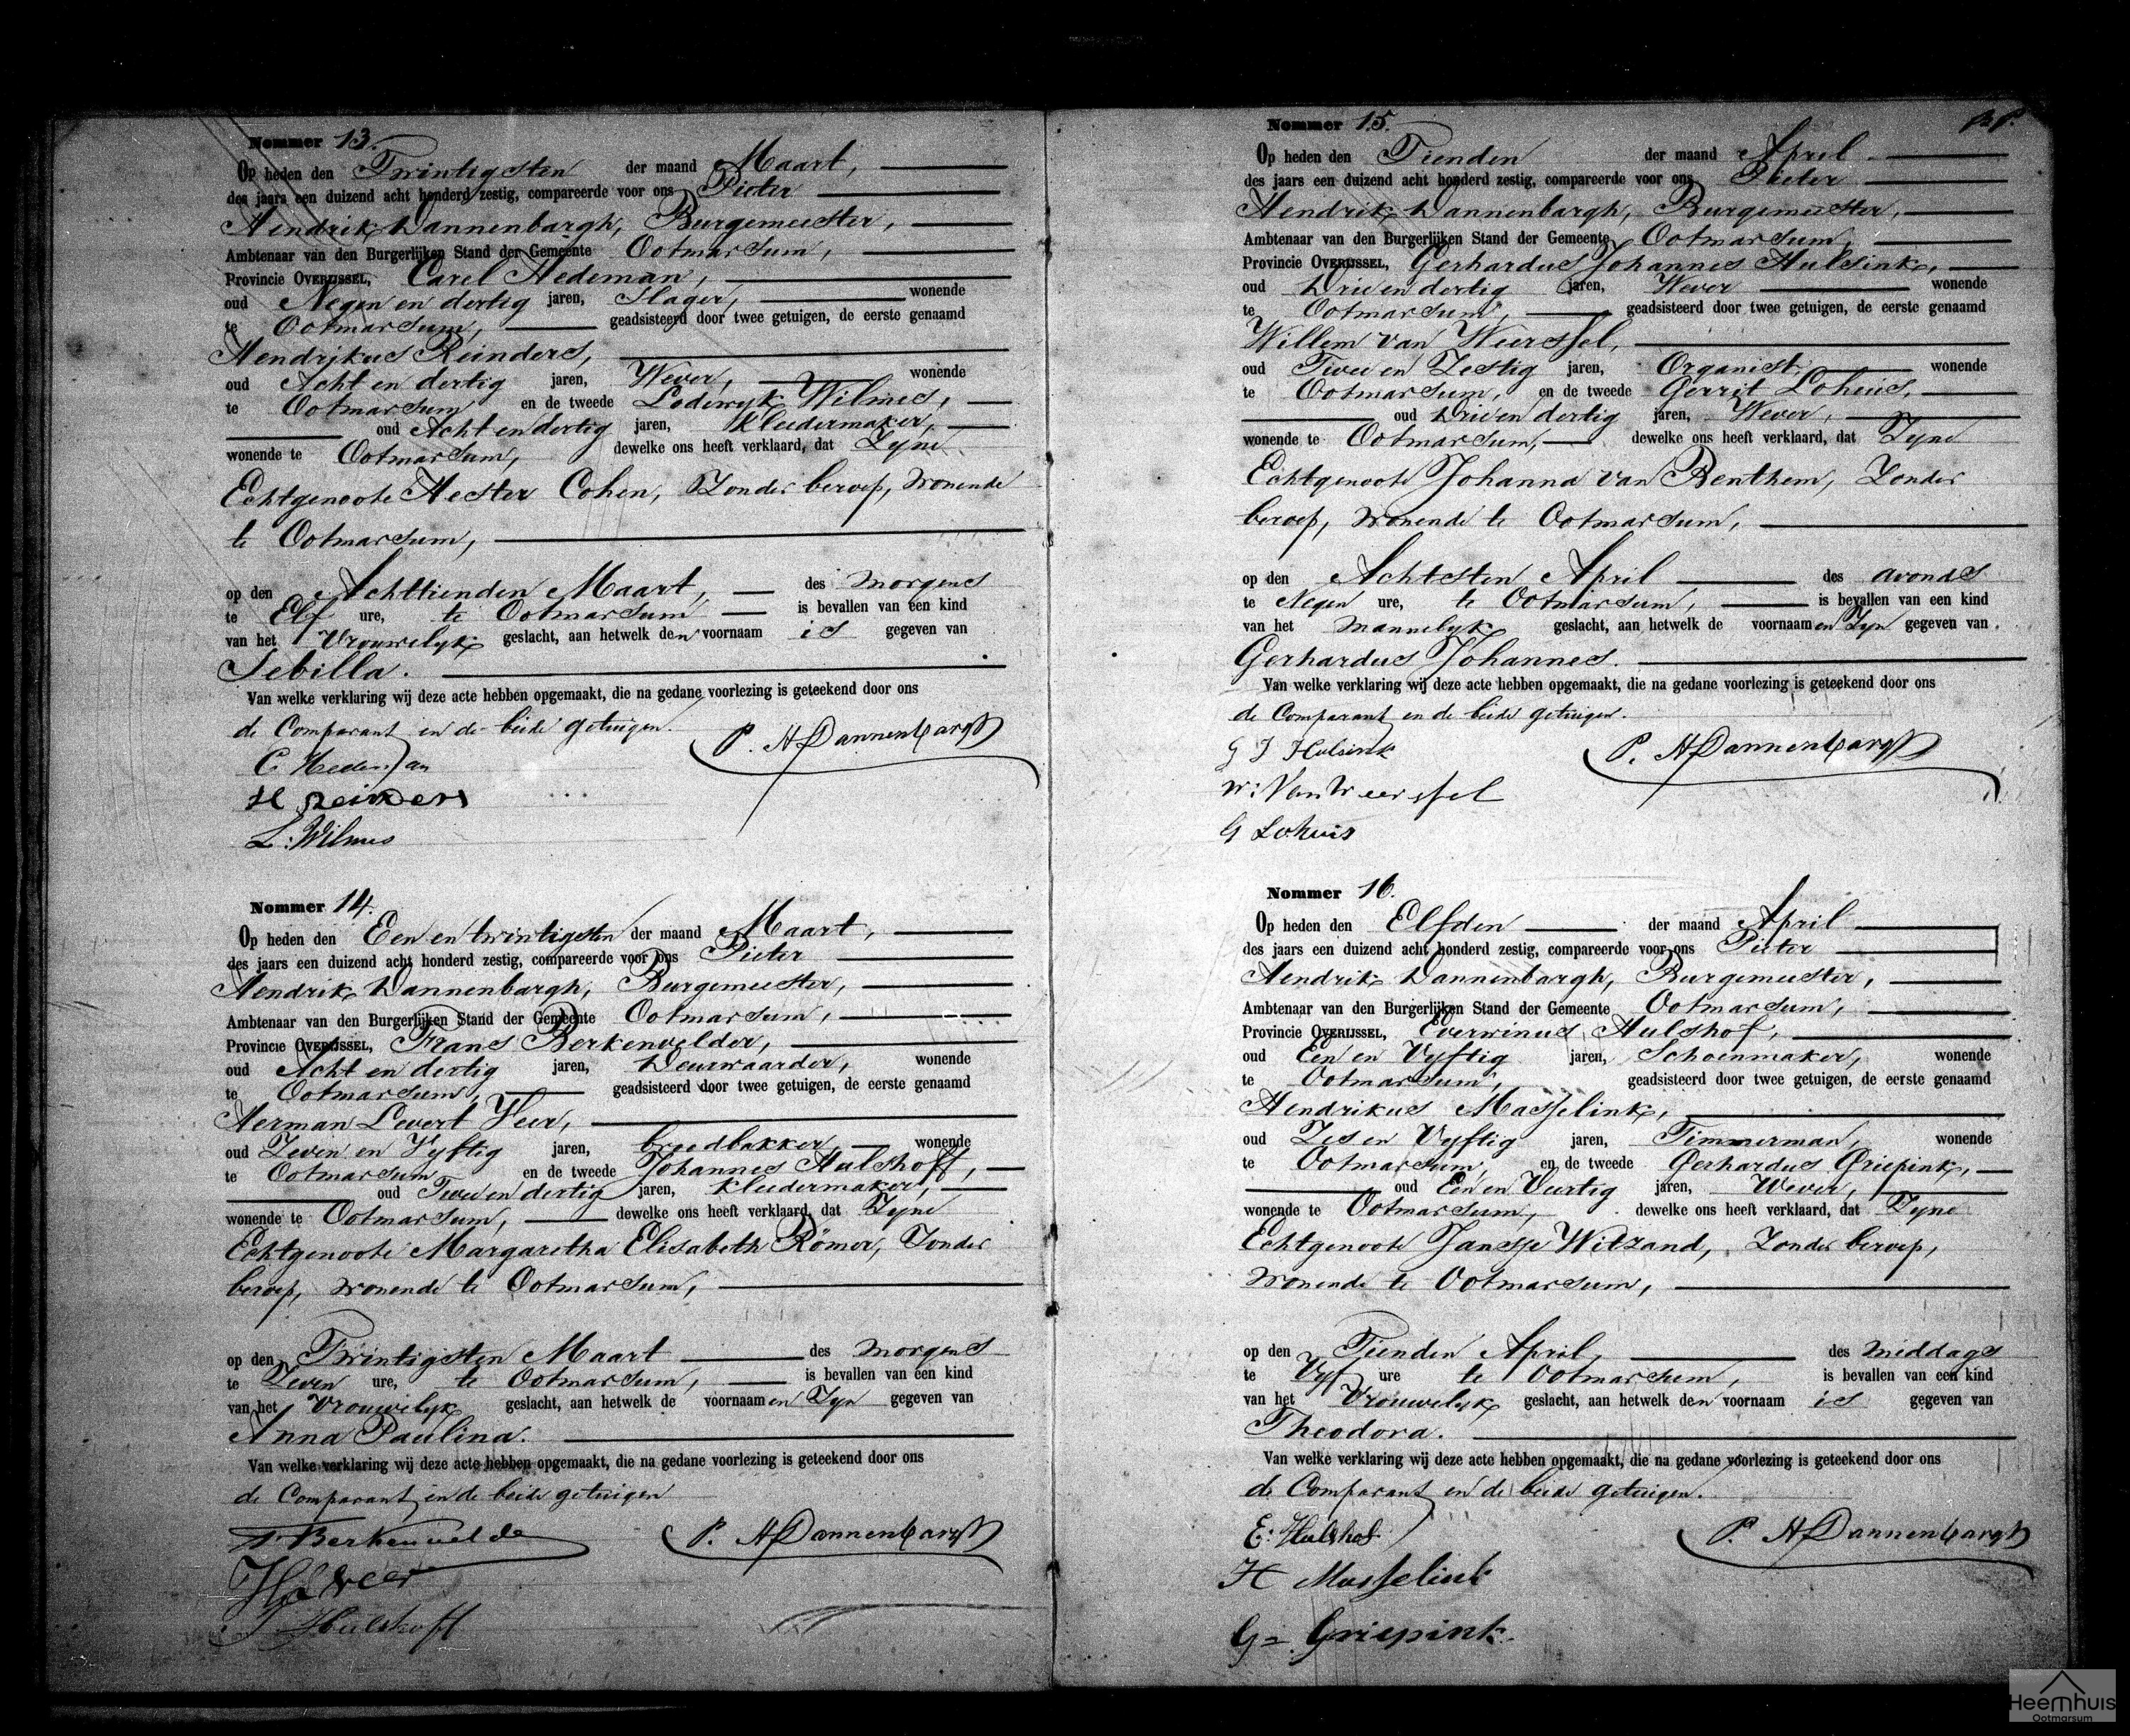 Nommer 13.
Op heden den Twintigsten der maand Maart,
des jaars een duizend acht honderd zestig, compareerde voor ons Pieter
Hendrik Dannenbargh, Burgemeester,
Ambtenaar van den Burgerlijken Stand der Gemeente Ootmarsum,
Provincie OVERIJSSEL, Carel Hedeman,
oud Negen en dertig jaren, Slager, wonende
te Ootmarsum, geadsisteerd door twee getuigen, de eerste genaamd
Hendrikus Reinders,
oud Acht en dertig jaren, Wever, wonende
te Ootmarsum en de tweede Lodewyk Wilmes,
oud Acht en dertig jaren, Kleedermaker,
wonende te Ootmarsum, dewelke ons heeft verklaard, dat Zyne
Echtgenoote Hester Cohen, Zonder beroep, wonende
te Ootmarsum,
op den Achttienden Maart, des morgens
te Elf ure, te Ootmarsum is bevallen van een kind
van het Vrouwelyk geslacht, aan hetwelk den voornaam is gegeven van
Sebilla.
Van welke verklaring wij deze acte hebben opgemaakt, die na gedane voorlezing is geteekend door ons
de Comparant en de beide getuigen.
P. H Dannenbargh
C Hedeman
H Reinders
L. Wilmes
Nommer 14.
Op heden den Een en twintigsten der maand Maart,
des jaars een duizend acht honderd zestig, compareerde voor ons Pieter
Hendrik Dannenbargh, Burgemeester,
Ambtenaar van den Burgerlijken Stand der Gemeente Ootmarsum,
Provincie OVERIJSSEL, Frans Berkenvelder,
oud Acht en dertig jaren, Deurwaarder, wonende
te Ootmarsum, geadsisteerd door twee getuigen, de eerste genaamd
Herman Levert Veer,
oud Zeven en Vyftig jaren, broodbakker, wonende
te Ootmarsum en de tweede Johannes Hulshoff,
oud Twee en dertig jaren, Kleedermaker,
wonende te Ootmarsum, dewelke ons heeft verklaard, dat Zyne
Echtgenoote Margaretha Elisabeth Römer, Zonder
beroep, wonende te Ootmarsum,
op den Twintigsten Maart des morgens
te Zeven ure, te Ootmarsum, is bevallen van een kind
van het Vrouwelyk geslacht, aan hetwelk de voornaamen Zyn gegeven van
Anna Paulina.
Van welke verklaring wij deze acte hebben opgemaakt, die na gedane voorlezing is geteekend door ons
de Comparant en de beide getuigen
P. H Dannenbargh
Berkenvelde
H L Veer
J Hulshoff
Nommer 15.
Op heden den Tienden der maand April
des jaars een duizend acht honderd zestig, compareerde voor ons Pieter
Hendrik Dannenbargh, Burgemeester,
Ambtenaar van den Burgerlijken Stand der Gemeente Ootmarsum,
Provincie OVERIJSSEL, Gerhardus Johannes Hulsink,
oud Drie en dertig jaren, Wever wonende
te Ootmarsum, geadsisteerd door twee getuigen, de eerste genaamd
Willem van Weerssel,
oud Twee en Zestig jaren, Organist, wonende
te Ootmarsum, en de tweede Gerrit Lohuis,
oud Drie en dertig jaren, Wever,
wonende te Ootmarsum, dewelke ons heeft verklaard, dat Zyne
Echtgenoote Johanna van Benthem, Zonder
beroep, wonende te Ootmarsum,
op den Achtsten April des avonds
te Negen ure, te Ootmarsum, is bevallen van een kind
van het mannelyk geslacht, aan hetwelk de voornaamen Zyn gegeven van
Gerhardus Johannes.
Van welke verklaring wij deze acte hebben opgemaakt, die na gedane voorlezing is geteekend door ons
de Comparant en de beide getuigen.
P. H Dannenbargh
G J Hulsink
W: Van Weerssel
G Lohuis
Nommer 16.
Op heden den Elfden der maand April
des jaars een duizend acht honderd zestig, compareerde voor ons Pieter
Hendrik Dannenbargh, Burgemeester,
Ambtenaar van den Burgerlijken Stand der Gemeente Ootmarsum,
Provincie OVERIJSSEL, Everwinus Hulshof,
oud Een en Vyftig jaren, Schoenmaker, wonende
te Ootmarsum, geadsisteerd door twee getuigen, de eerste genaamd
Hendrikus Masselink,
oud Zes en Vyftig jaren, Timmerman, wonende
te Ootmarsum, en de tweede Gerhardus Griepink,
oud Een en Veertig jaren, Wever,
wonende te Ootmarsum, dewelke ons heeft verklaard, dat Zyne
Echtgenoote Jansje Witzand, Zonder beroep,
wonende te Ootmarsum,
op den Tienden April, des middags
te Vyf ure te Ootmarsum, is bevallen van een kind
van het Vrouwelyk geslacht, aan hetwelk den voornaam is gegeven van
Theodora.
Van welke verklaring wij deze acte hebben opgemaakt, die na gedane voorlezing is geteekend door ons
de Comparant en de beide getuigen.
P. H Dannenbargh
E: Hulshof
H Masselink
G= Griepink.
Heemhuis
Ootmarsum